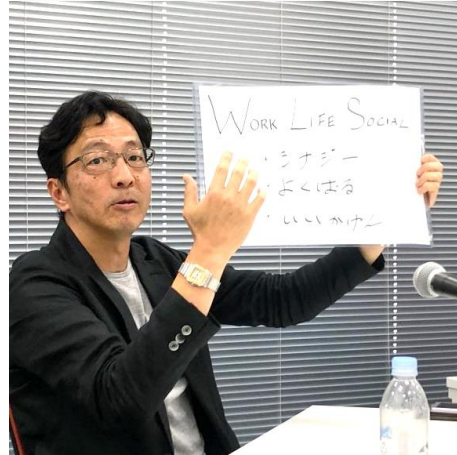 WORK LIFE SOCIAL
・シナジー
・よくばる
・いいかげん